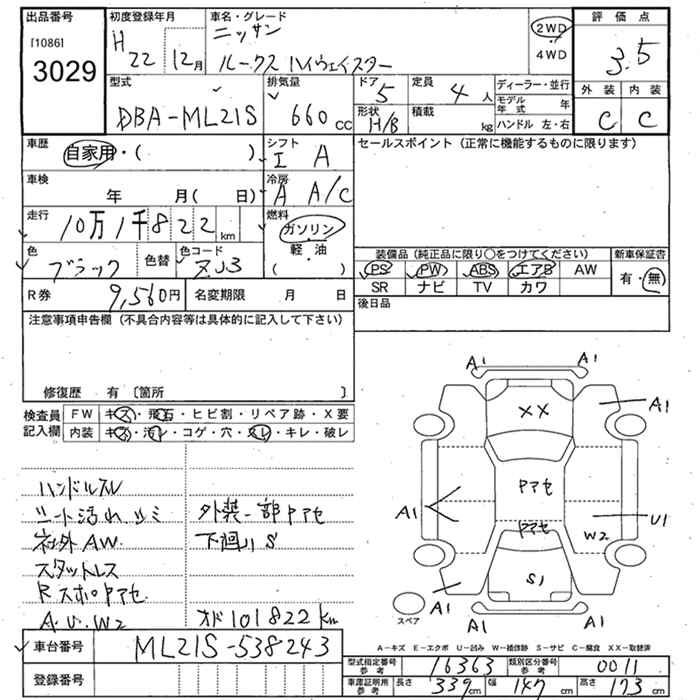 出品番号
[1086]
3029
初度登録年月
H 22 12月
車名・グレード
ニッサン
ルークス ハイウェイスター
2WD
4WD
評価点
3.5
外装 内装
C C
型式
DBA-ML21S
排気量
660 cc
ドア
5
定員
4 人
形状
H/B
積載
kg
ディーラー・並行
モデル年式 年
ハンドル 左・右
車歴
自家用・( )
シフト
I A
セールスポイント (正常に機能するものに限ります)
車検
年 月( 日)
冷房
A A/C
走行
10万1千822 km
燃料
ガソリン
軽・油
( )
色
ブラック
色替
色コード
ZJ3
装備品 (純正品に限り○をつけてください)
新車保証書
PS PW ABS エアB AW
SR ナビ TV カワ
有・無
R券
9,560円
名変期限 月 日
後日品
注意事項申告欄 (不具合内容等は具体的に記入して下さい)
修復歴 有 〔箇所 〕
検査員
記入欄
FW キズ・飛石・ヒビ割・リペア跡・X要
内装 キズ・汚レ・コゲ・穴・スレ・キレ・破レ
ハンドルスレ
シート汚れ シミ
社外AW
スタットレス
Rスポロアセ
A.U.W2
外装一部ロアセ
下廻りS
オド101822km
A1 A1
XX
A1
ロアセ
A1
U1
W2
ロアセ
S1
A1 A1 A1
スペア
A-キズ E-エクボ U-凹み W-補修跡 S-サビ C-腐食 XX-取替済
車台番号
ML21S-538243
登録番号
型式指定番号 参考
16363
類別区分番号 参考
0011
車庫証明用 参考
長さ 339cm 幅 147cm 高さ 173cm